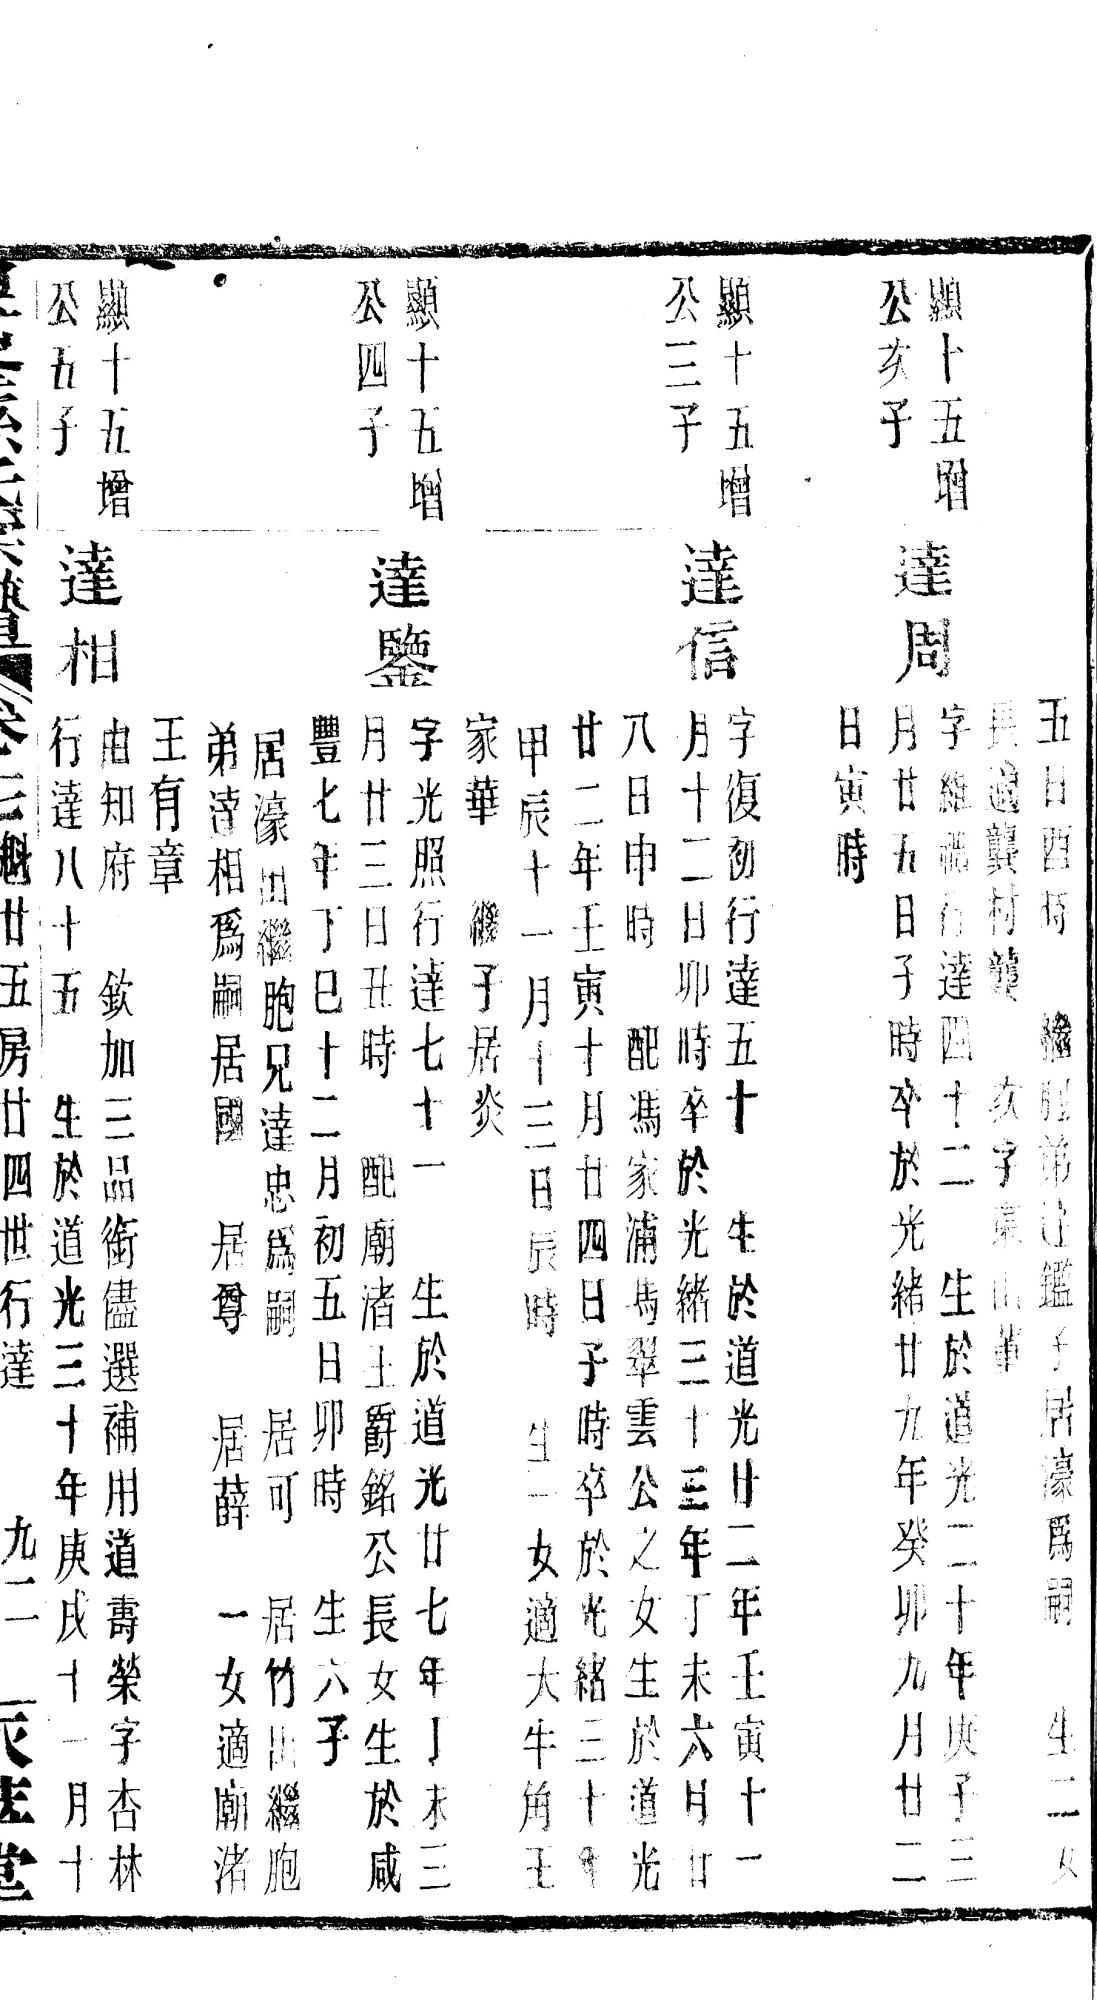 五日酉時　繼胞弟達鑑子居濠爲嗣　生二女
適龔村龔　次字　山董
顯十五增
公次子
達周
字維　行達四十二　生於道光二十年庚子三
月廿五日子時卒於光緒廿九年癸卯九月廿二
日寅時
顯十五增
公三子
達信
字復初行達五十　生於道光廿二年壬寅十一
月十二日卯時卒於光緒三十三年丁未六月廿
八日申時　配馮家浦馬翠雲公之女生於道光
廿二年壬寅十月廿四日子時卒於光緒三十年
甲辰十一月十三日辰時　生一女適大牛角王
家華　繼子居炎
顯十五增
公四子
達鑒
字光照行達七十一　生於道光廿七年丁未三
月廿三日丑時　配廟渚王爵銘公長女生於咸
豐七年丁巳十二月初五日卯時　生六子
居濠出繼胞兄達忠爲嗣　居可　居竹出繼胞
弟達相爲嗣居國　居尊　居薛　一女適廟渚
王有章
顯十五增
公五子
達相
由知府　欽加三品銜儘選補用道壽榮字杏林
行達八十五　生於道光三十年庚戌十一月十
卷十七魁廿五房廿四世行達　九二